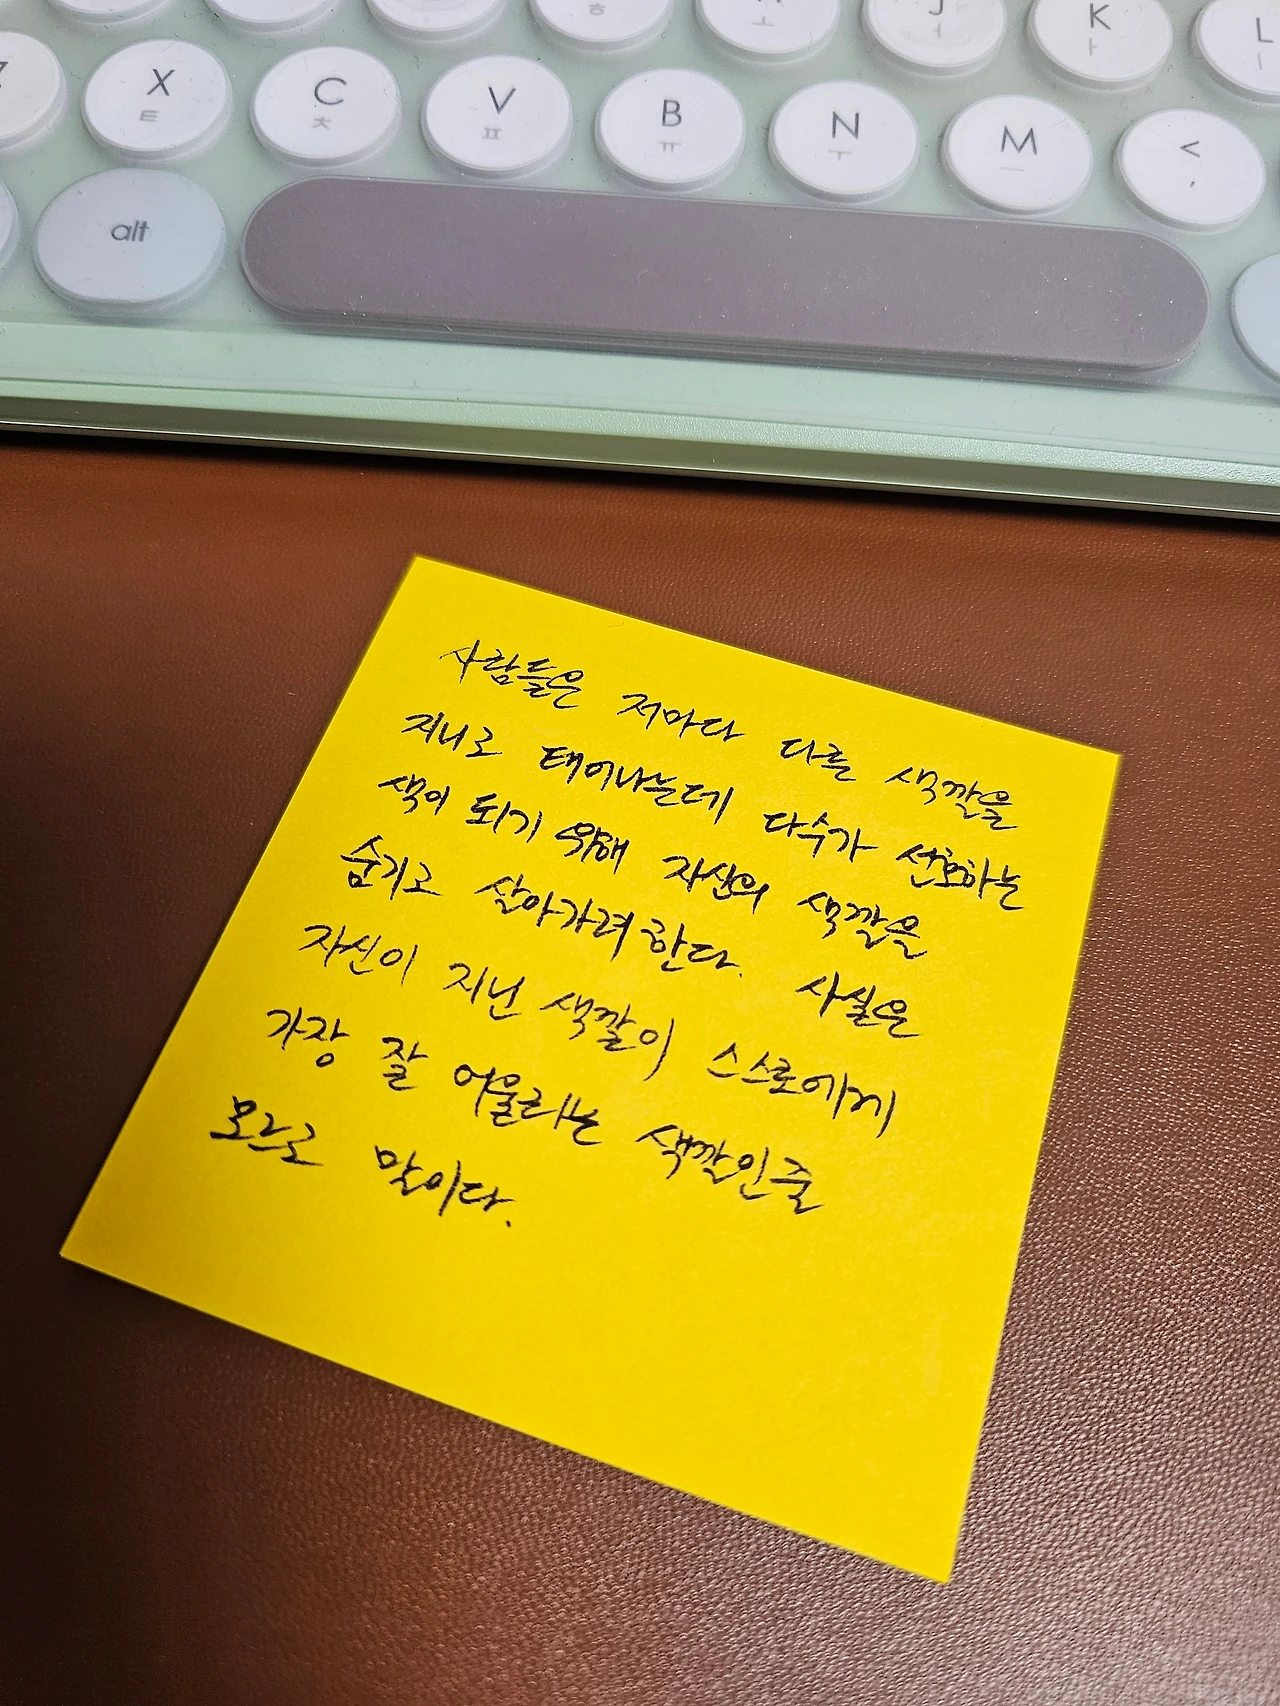 ㅎ ㅗ J ㅓ K ㅏ L ㅣ
X ㅌ C ㅊ V ㅍ B ㅠ N ㅜ M ㅡ < ,
alt
사람들은 저마다 다른 색깔을
지니고 태어나는데 다수가 선호하는
색이 되기 위해 자신의 색깔을
숨기고 살아가려 한다. 사실은
자신이 지닌 색깔이 스스로에게
가장 잘 어울리는 색깔인줄
모르고 말이다.